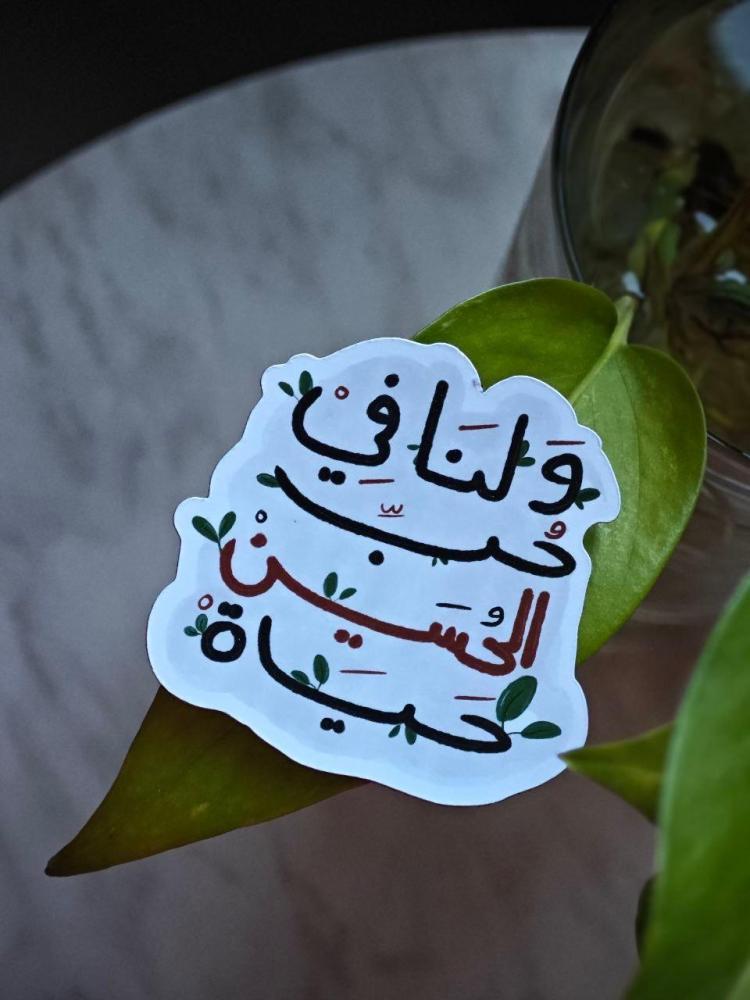 وَلنَا في
حُبّ
الحُسين
حَياة